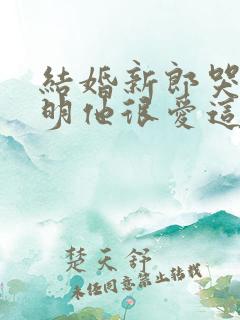 結婚新郎哭
明他很愛這
楚天舒
未经同意禁止转载